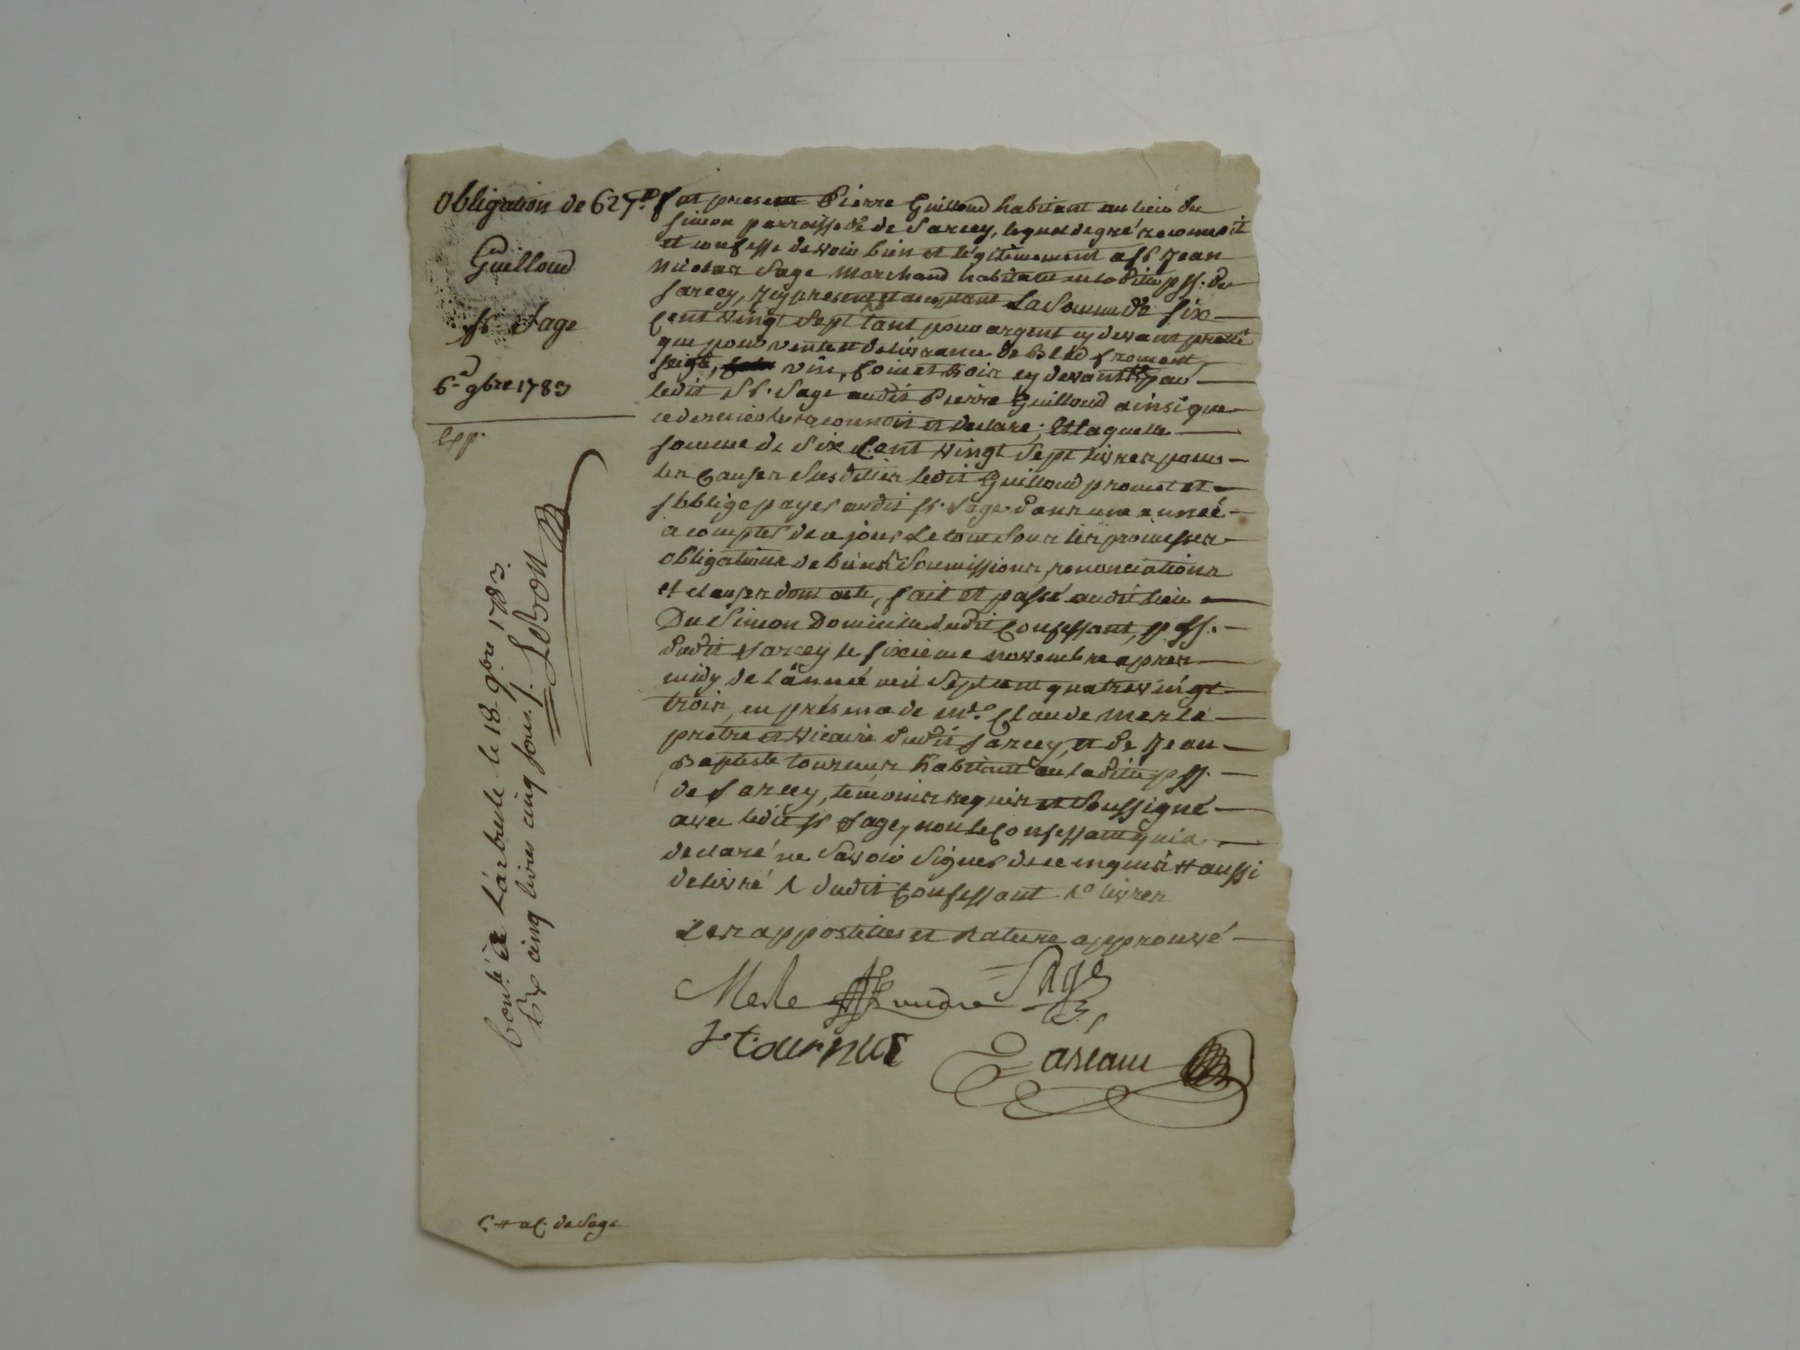 Obligation de 627ᵗᵗ
Guilloud
sʳ Sage
6ᵉ 9bre 1783
Exp.
fut present Pierre Guilloud habitant au lieu du
Simon parroisse de Sarcey, lequel de gré reconnoit
et confesse devoir bien et légitimement a sʳ Jean
Nicolas Sage Marchand habitant en laditte pss. de
Sarcey, icy present et acceptant La Somme de Six
Cent vingt Sept tant pour argent cy devant presté
que pour vente et délivrance de Bled froment
seigle, vin, foin et Bois cy devant par
ledit Sʳ. Sage audit Pierre Guilloud ainsi que
ce dernier le reconnoit et declare; Et laquelle
somme de Six Cent vingt Sept livres pour
les Causes Susdittes ledit Guilloud promet et
s'oblige payer audit sʳ. Sage dans une année
a compter de ce jour Le tout Sous les promesses
obligations de biens Soumissions, renonciations
et clauses dont acte, fait et passé audit lieu
Du Simon Domicille dudit Confessant, pss.
dudit Sarcey le sixieme novembre apres
midy de l'année mil Sept cent quatre vingt
trois, en présence de mʳᵉ. Claude Merle
prêtre et vicaire dudit Sarcey, et de Jean
Baptiste tournus habitant en laditte pss.
de Sarcey, témoins requis et Soussigné
avec ledit sʳ Sage, non le Confessant qui a
declaré ne Savoir Signer de ce enquis # aussi
delivré # dudit Confessant # livres
Les appostilles et rature approuvé
Merle Sage
J tournus
Contˡᵉ à L'arbresle le 18 9bre 1783.
Rx cinq livres cinq sous. LeBon
C. # al. de Sage